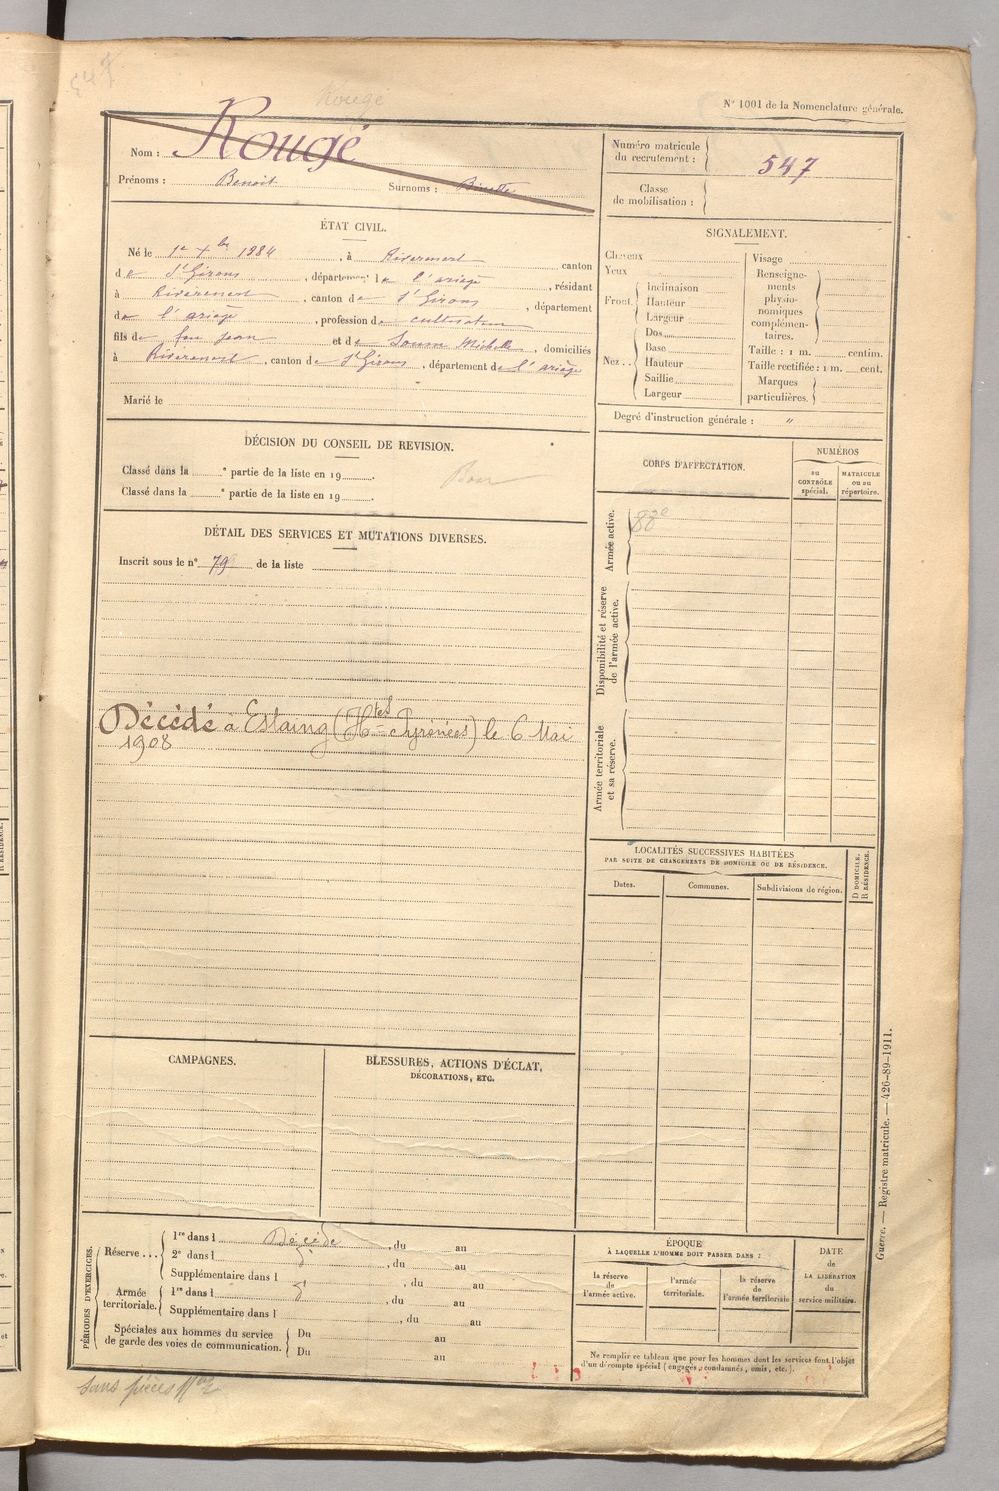 547
Rougé
N° 1001 de la Nomenclature générale.
Nom : Rougé
Prénoms : Benoit Surnoms :
Numéro matricule du recrutement : 547
Classe de mobilisation :
ÉTAT CIVIL.
Né le 1er Xbre 1884, à Rivèrenert canton
de St Girons, département de l'ariège, résidant
à Rivèrenert, canton de St Girons, département
de l'ariège, profession de cultivateur
fils de feu Jean et de Soum Michelle, domiciliés
à Rivèrenert, canton de St Girons, département de l'ariège
Marié le
SIGNALEMENT.
Cheveux
Yeux
Front.
Inclinaison
Hauteur
Largeur
Nez..
Dos
Base
Hauteur
Saillie
Largeur
Visage
Renseignements physionomiques complémentaires.
Taille : 1 m. centim.
Taille rectifiée : 1 m. cent.
Marques particulières.
Degré d'instruction générale : "
DÉCISION DU CONSEIL DE REVISION.
Classé dans la e partie de la liste en 19 .
Classé dans la e partie de la liste en 19 .
Bon
DÉTAIL DES SERVICES ET MUTATIONS DIVERSES.
Inscrit sous le n° 79 de la liste
Décédé à Estaing (Htes Pyrénées) le 6 Mai
1908
CORPS D'AFFECTATION.
NUMÉROS
au CONTRÔLE spécial.
MATRICULE ou au répertoire.
Armée active.
88e
Disponibilité et réserve de l'armée active.
Armée territoriale et sa réserve.
LOCALITÉS SUCCESSIVES HABITÉES
PAR SUITE DE CHANGEMENTS DE DOMICILE OU DE RÉSIDENCE.
D DOMICILE.
R RÉSIDENCE.
Dates. Communes. Subdivisions de région.
CAMPAGNES.
BLESSURES, ACTIONS D'ÉCLAT,
DÉCORATIONS, ETC.
PÉRIODES D'EXERCICES.
Réserve...
1re dans l Décédé, du au
2e dans l , du au
Supplémentaire dans l , du au
Armée territoriale.
1re dans l , du au
Supplémentaire dans l , du au
Spéciales aux hommes du service de garde des voies de communication.
Du au
Du au
ÉPOQUE
À LAQUELLE L'HOMME DOIT PASSER DANS :
la réserve de l'armée active.
l'armée territoriale.
la réserve de l'armée territoriale
DATE de LA LIBÉRATION du service militaire.
Ne remplir ce tableau que pour les hommes dont les services font l'objet
d'un décompte spécial (engagés, condamnés, omis, etc.).
Guerre. — Registre matricule. — 426-89-1911.
Sans pièces